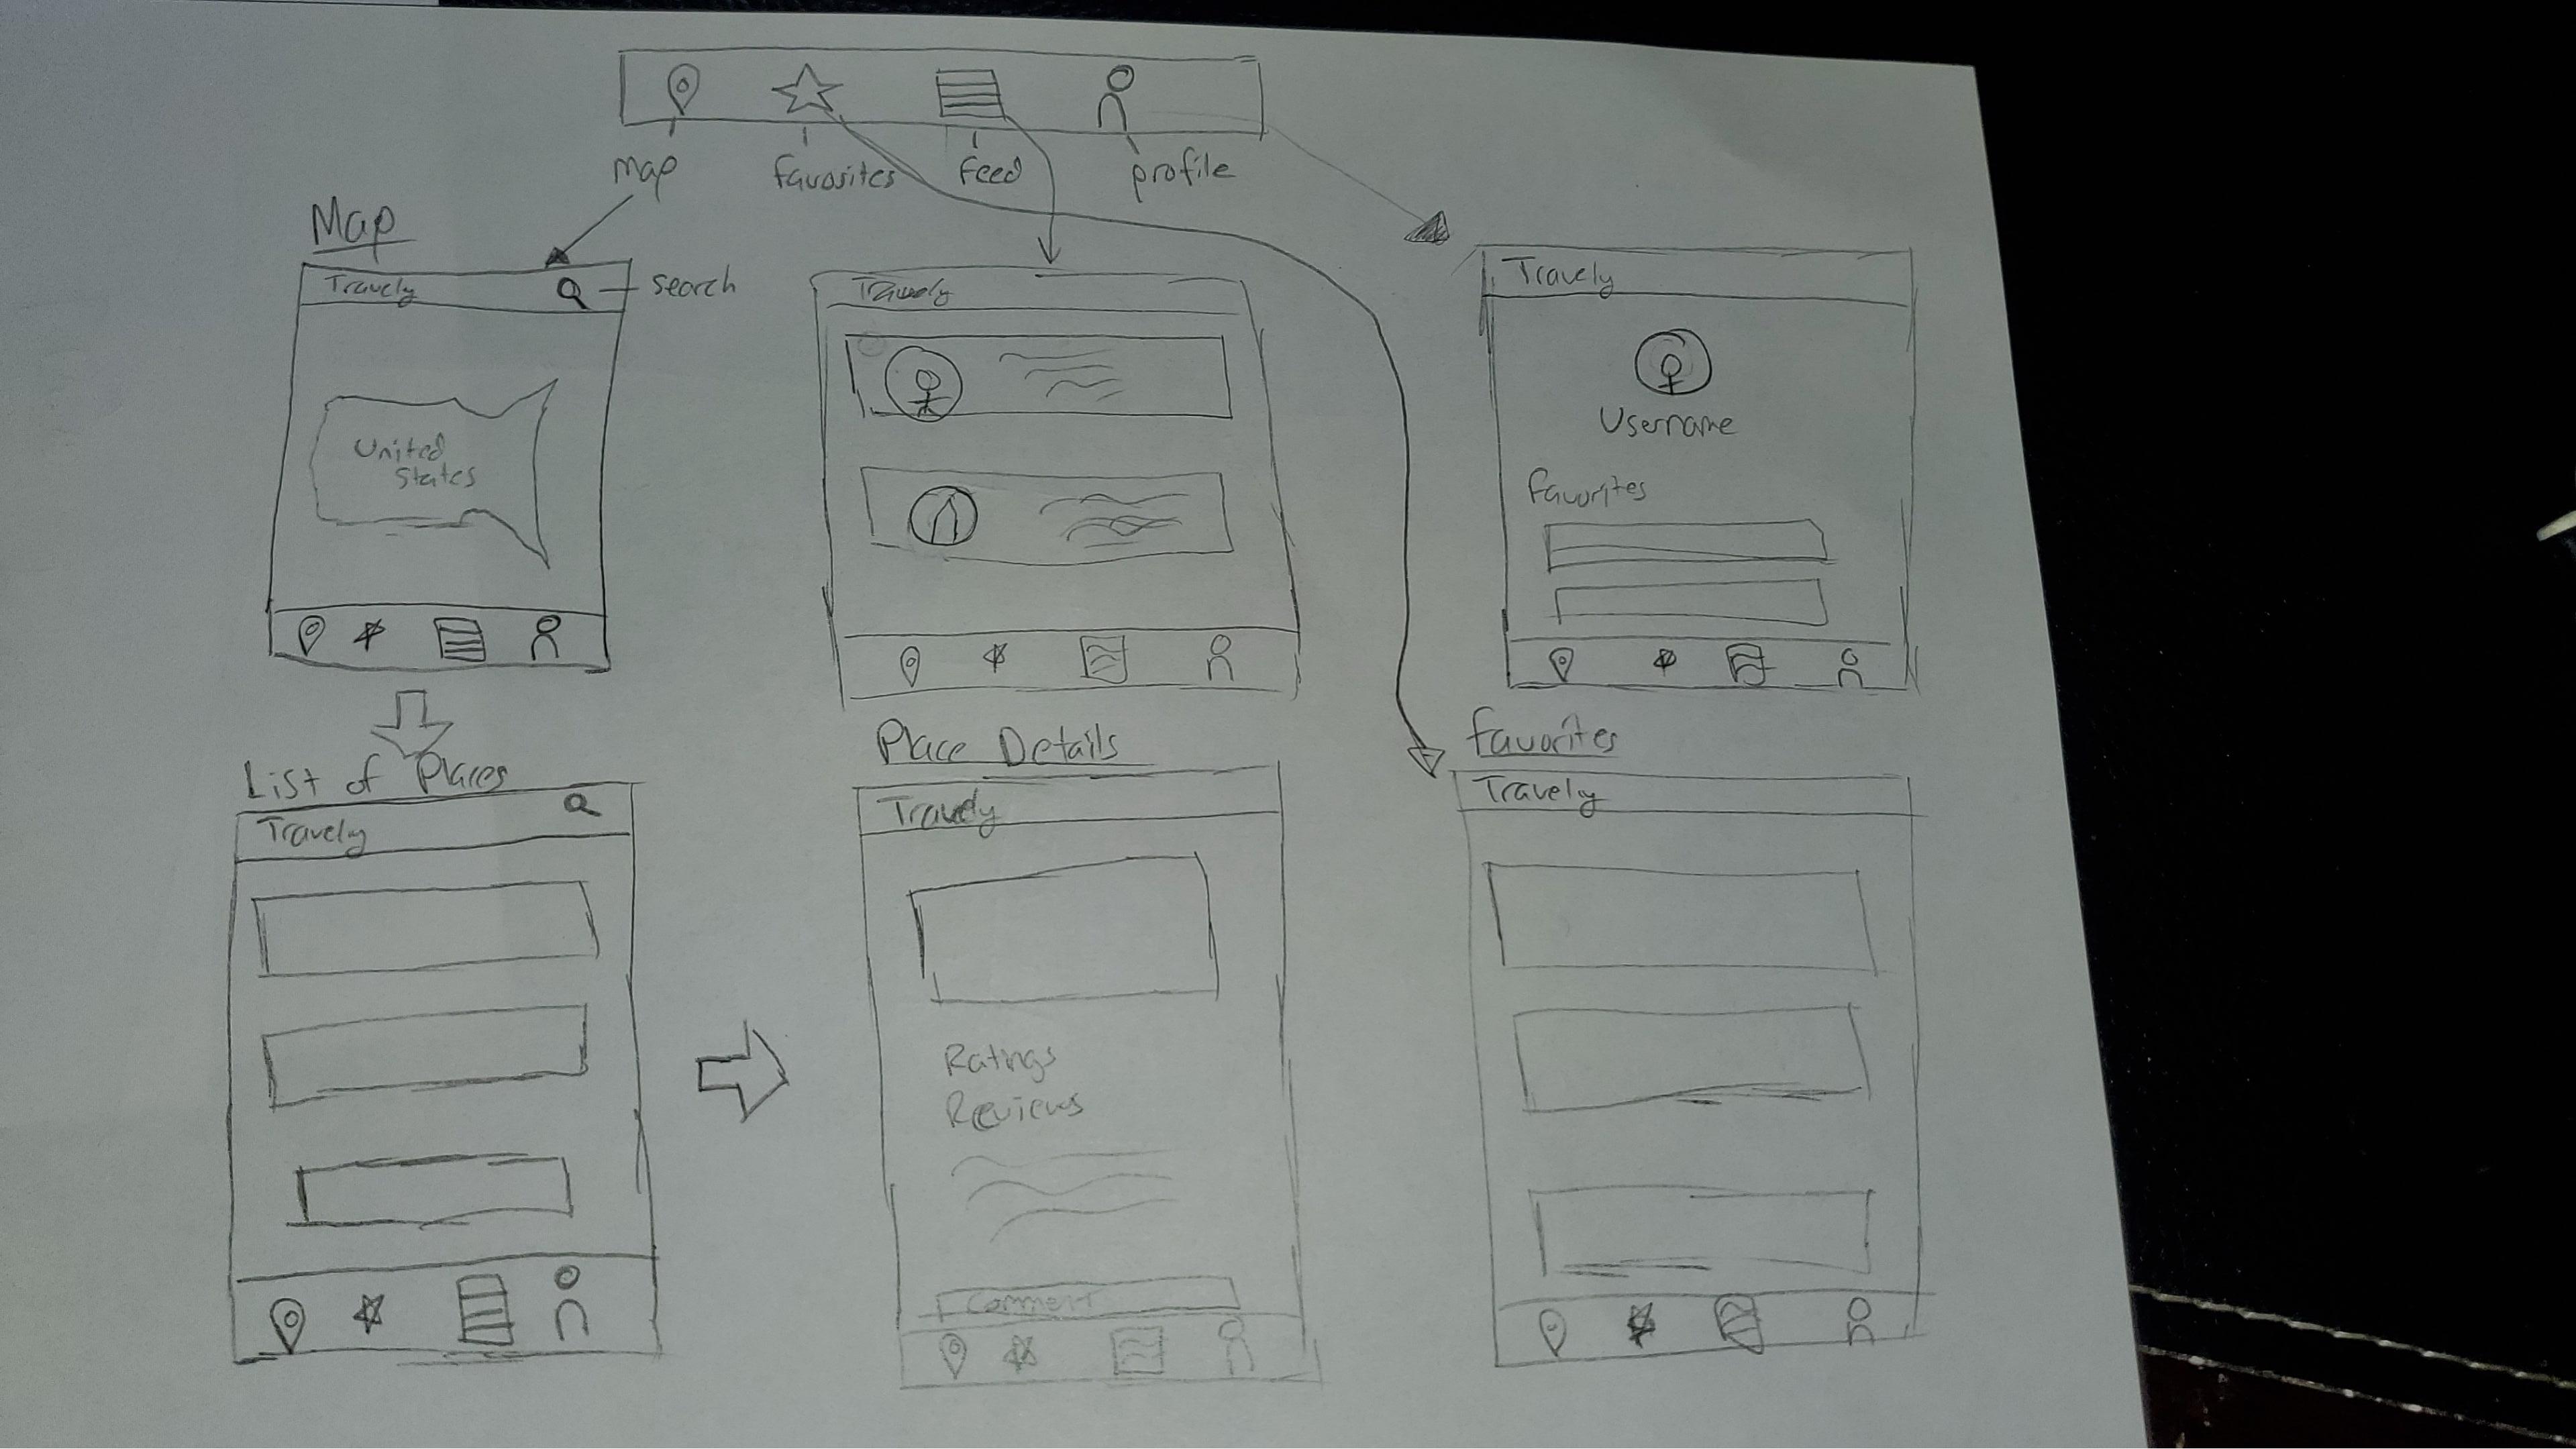 map
favorites
feed
profile
Map
Travely
search
United
States
Travely
Travely
Username
favorites
List of Places
Travely
Place Details
Travely
Ratings
Reviews
Comment
favorites
Travely